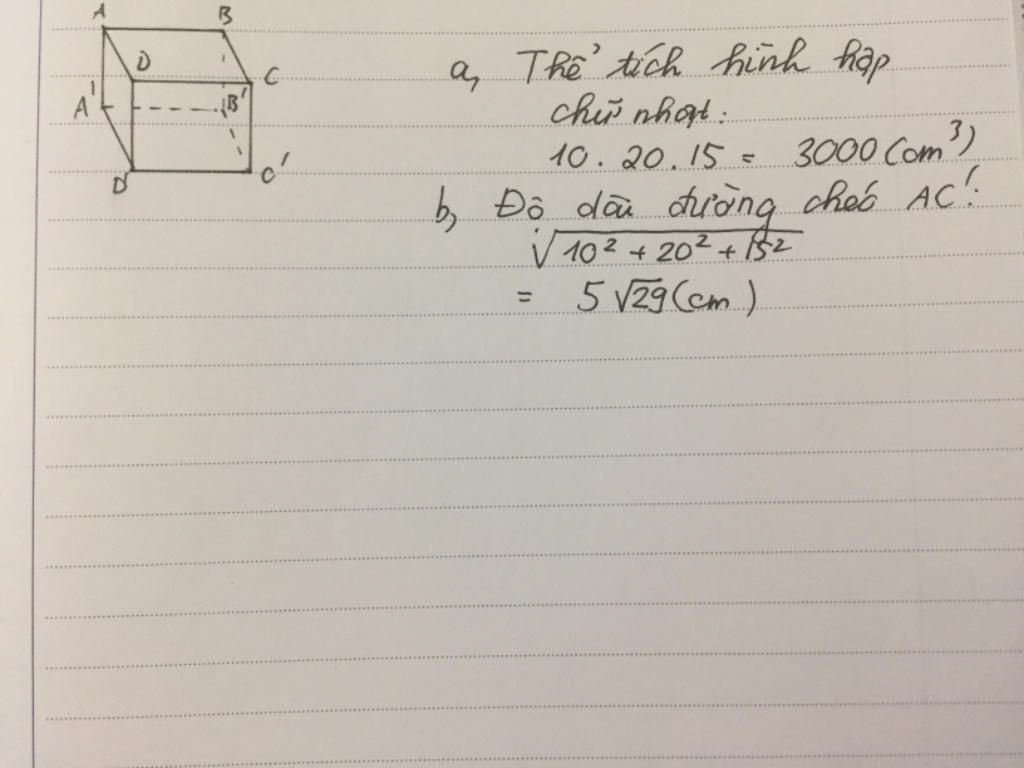 A B
D C
A' B'
D' C'
a, Thể tích hình hộp
chữ nhật:
10 . 20 . 15 = 3000 (cm³)
b, Độ dài đường chéo AC':
√10² + 20² + 15²
= 5 √29 (cm)